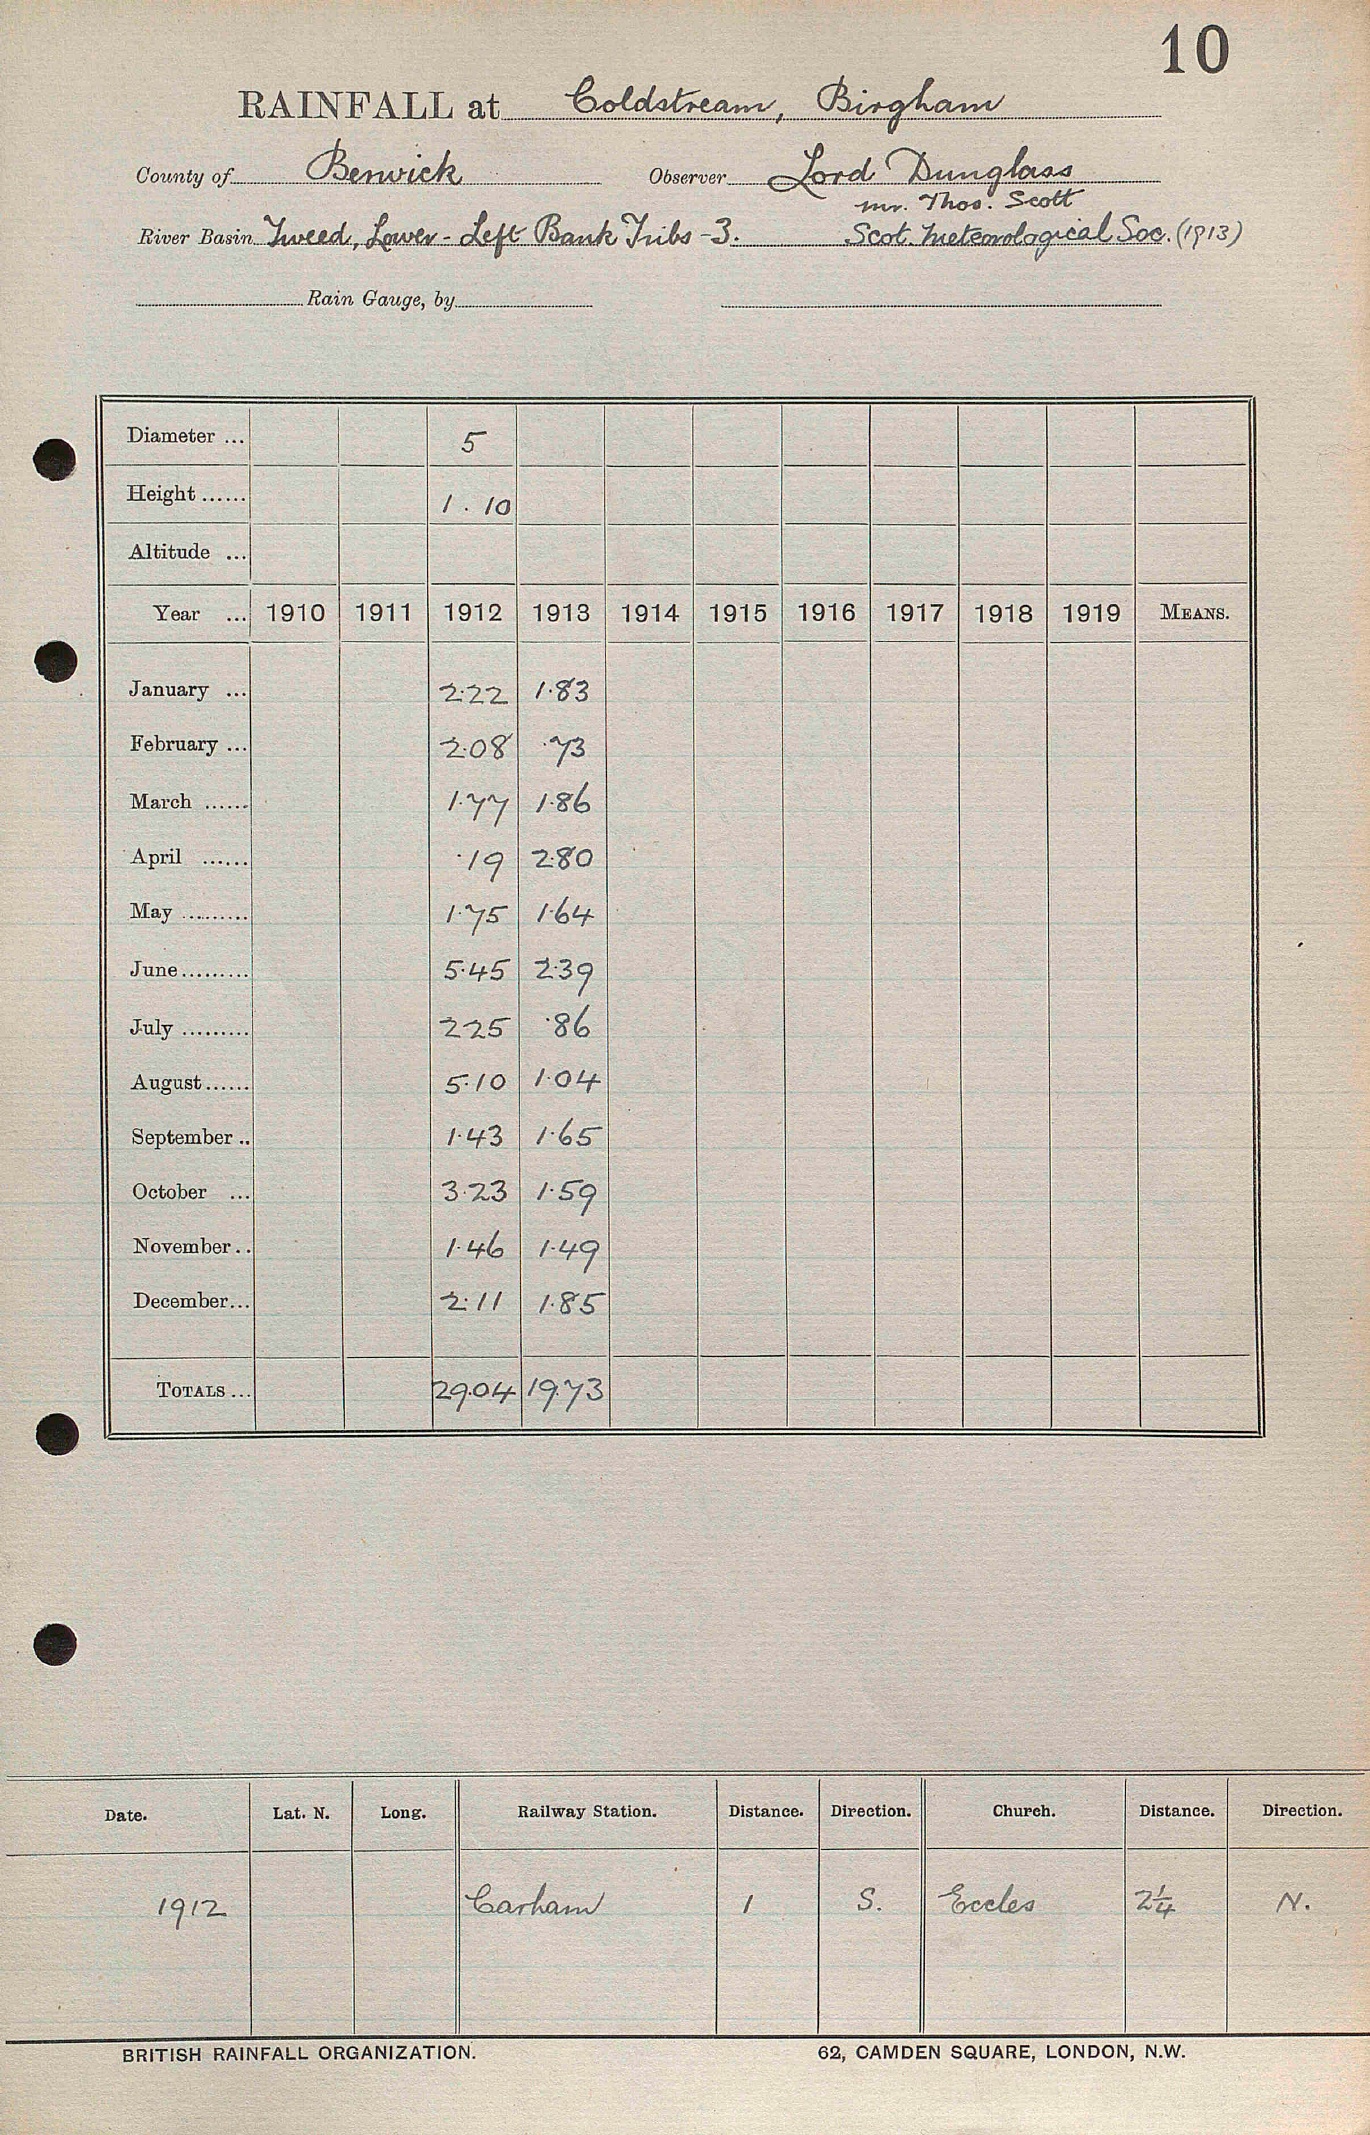 10
RAINFALL at Coldstream, Birgham
County of Berwick Observer Lord Dunglass
Mr. Thos. Scott
River Basin Tweed, Lower - Left Bank Tribs - 3. Scot. Meteorological Soc. (1913)
Rain Gauge, by
Diameter ... 5
Height ...... 1 . 10
Altitude ...
Year ... 1910 1911 1912 1913 1914 1915 1916 1917 1918 1919 MEANS.
January ... 2.22 1.83
February ... 2.08 .73
March ...... 1.77 1.86
April ...... .19 2.80
May ......... 1.75 1.64
June......... 5.45 2.39
July ......... 2.25 .86
August...... 5.10 1.04
September .. 1.43 1.65
October ... 3.23 1.59
November.. 1.46 1.49
December... 2.11 1.85
TOTALS ... 29.04 19.73
Date. Lat. N. Long. Railway Station. Distance. Direction. Church. Distance. Direction.
1912 Carham 1 S. Eccles 2¼ N.
BRITISH RAINFALL ORGANIZATION. 62, CAMDEN SQUARE, LONDON, N.W.